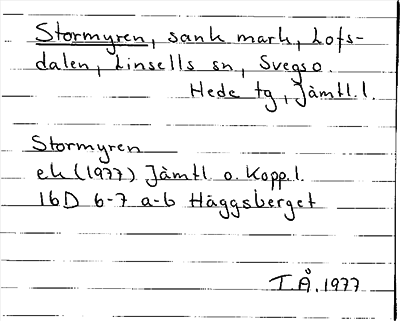 Stormyren, sank mark, Lofs-
dalen, Linsells sn, Svegs o.
Hede tg, Jämtl. l.
Stormyren
ek (1977) Jämtl o. Kopp. l.
16D 6-7 a-b Häggsberget
T.Å. 1977